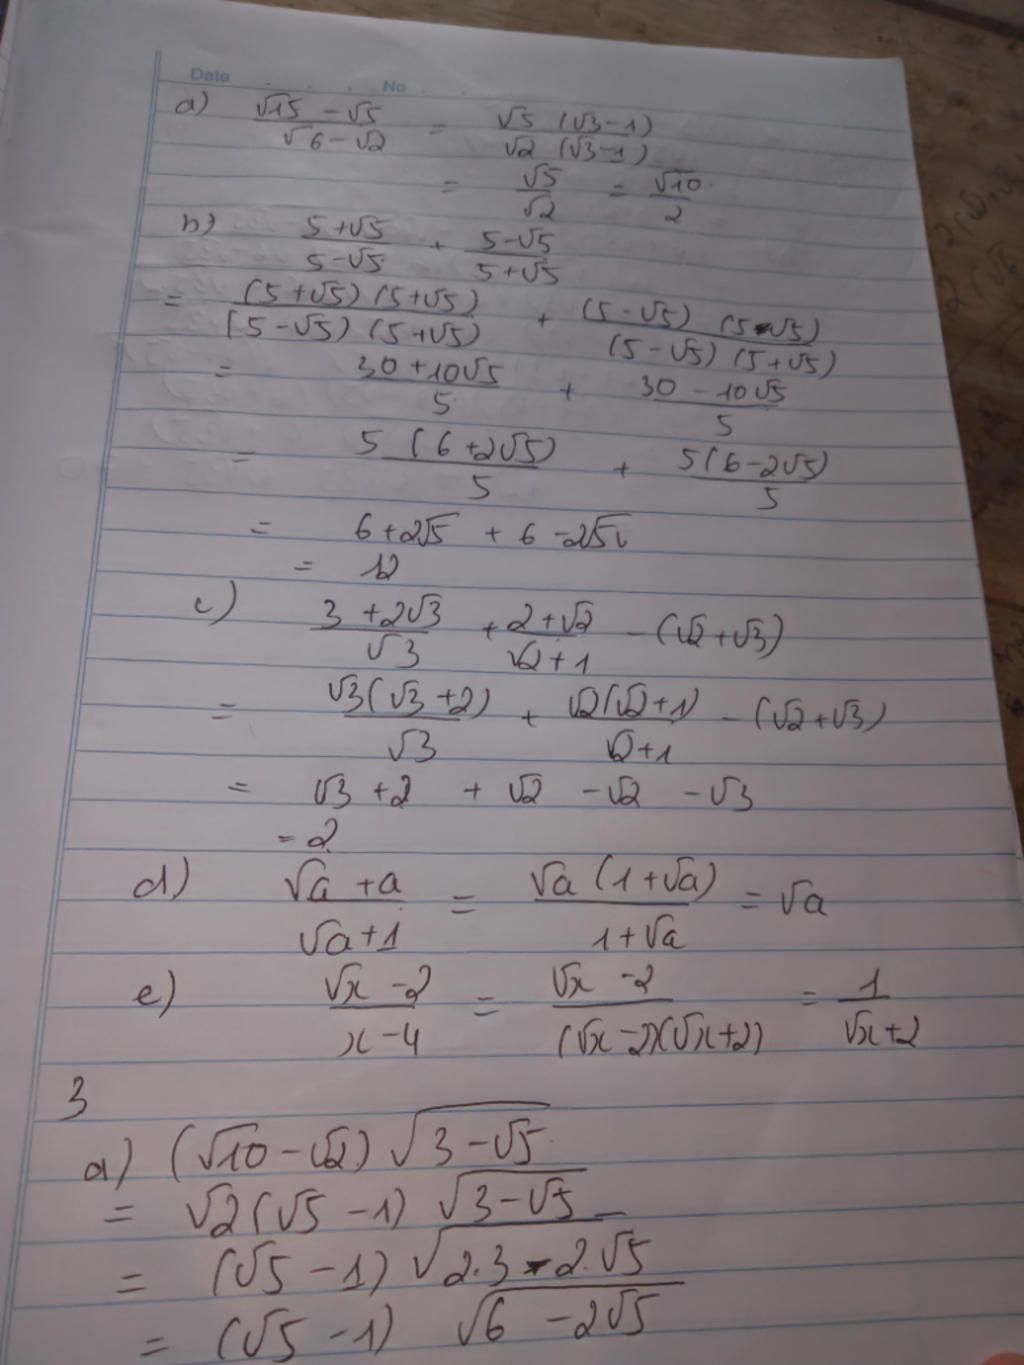 Date No
a) (√15 - √5)/(√6 - √2) = √5 (√3 - 1)/√2 (√3 - 1)
= √5/√2 = √10/2
b) (5 + √5)/(5 - √5) + (5 - √5)/(5 + √5)
= (5 + √5) (5 + √5)/(5 - √5) (5 + √5) + (5 - √5) (5 - √5)/(5 - √5) (5 + √5)
= (30 + 10√5)/5 + (30 - 10√5)/5
= 5 (6 + 2√5)/5 + 5(6 - 2√5)/5
= 6 + 2√5 + 6 - 2√5
= 12
c) (3 + 2√3)/√3 + (2 + √2)/(√2 + 1) - (√2 + √3)
= √3(√3 + 2)/√3 + √2(√2 + 1)/(√2 + 1) - (√2 + √3)
= √3 + 2 + √2 - √2 - √3
= 2
d) (√a + a)/(√a + 1) = √a (1 + √a)/(1 + √a) = √a
e) (√x - 2)/(x - 4) = (√x - 2)/(√x - 2)(√x + 2) = 1/(√x + 2)
3
a) (√10 - √2) √(3 - √5)
= √2 (√5 - 1) √(3 - √5)
= (√5 - 1) √(2.3 - 2.√5)
= (√5 - 1) √(6 - 2√5)